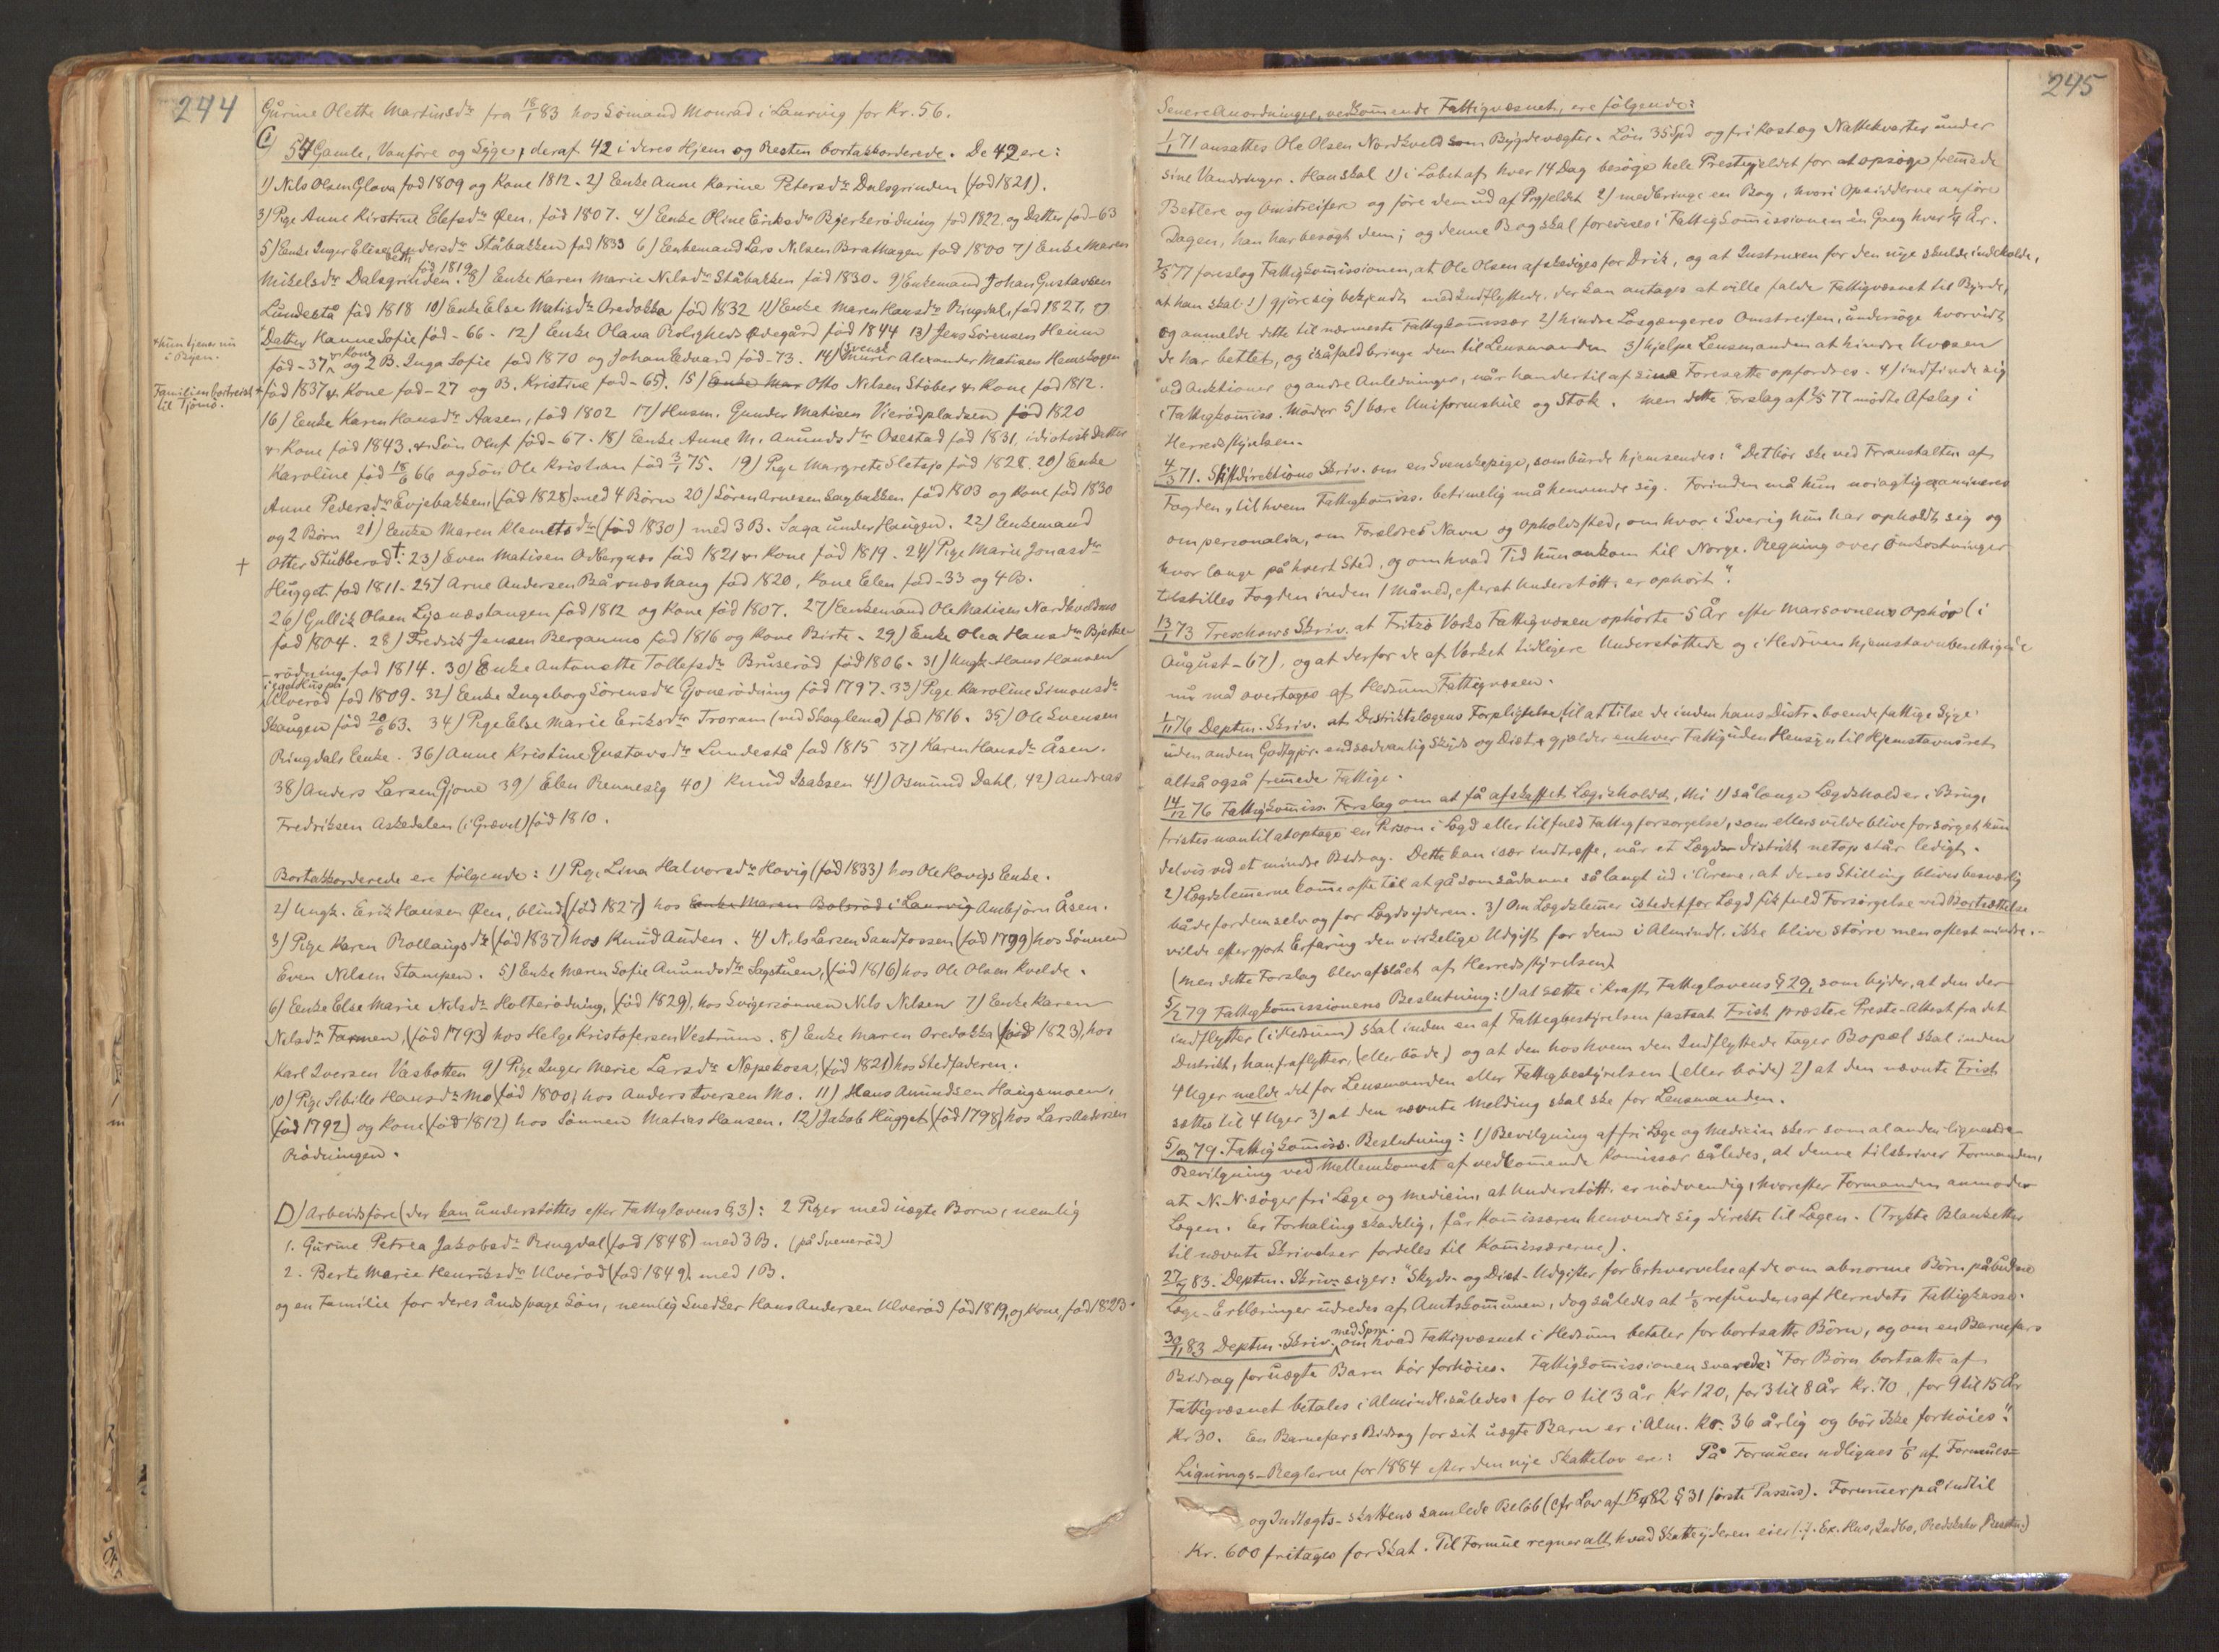 244
Gurine Olette Martinsdr fra 18/1 83 hos Sömand Monrad i Laurvig for Kr. 56.
C) 54 Gamle, Vanföre og Syge, deraf 42 i deres Hjem og Resten bortakkorderede. De 42 ere:
1) Nils Olsen Glova föd 1809 og Kone 1812. 2) Enke Anne Karine Petersdr Dalsgrinden (föd 1821).
3) Pige Anne Kirstine Elefsdr Öen, föd 1807. 4) Enke Oline Eriksdr Bjerkerödning föd 1822. og Datter föd -63
5) Enke Inger Elisebeth Andersdr Ståbakken föd 1833 6) Enkemand Lars Nilsen Brathagen föd 1800 7) Enke Maren
Mikelsdr Dalsgrinden. föd 1819 8) Enke Karen Marie Nilsdr Ståbakken föd 1830. 9) Enkemand Johan Gustavsen
Lundestå föd 1818 10) Enke Else Matisdr Oredokka föd 1832 11) Enke Maren Hansdr Ringdal, föd 1827, og
+ hun tjener nu i Byen.
+ Datter Hanne Sofie föd -66. 12) Enke Olava Roligheds Ödegård föd 1844 13) Jens Sörensen Heum
föd -37 + Kone og 2 B. Inga Sofie föd 1870 og Johan Edvard föd -73. 14) Svensk Murer Alexander Matisen Hemskogen
Familien bortreist til Tjömö.
+ föd 1837 & Kone föd -27 og B. Kristine föd -65. 15) Enke Mar Otto Nilsen Stöber & Kone föd 1812.
16) Enke Karen Hansdr Aasen, föd 1802 17) Husm. Gunder Matisen Vierödpladsen föd 1820
& Kone föd 1843. & Sön Oluf föd -67. 18) Enke Anne M. Amundsdr Osestad föd 1831, idiotisk Datter
Karoline föd 18/6 66 og Sön Ole Kristian föd 3/1 75. 19) Pige Margrete Sletsjö föd 1828. 20) Enke
Anne Pedersdr Evjebakken (föd 1828) med 4 Börn 20) Sören Arnesen Sagbakken föd 1803 og Kone föd 1830
og 2 Börn 21) Enke Maren Klemetsdr (föd 1830) med 3 B. Saga under Haugen. 22) Enkemand
+ Otter Stubberöd †. 23) Even Matisen Odbergnes föd 1821 & Kone föd 1819. 24) Pige Marie Jonasdr
Hugget föd 1811. 25) Arne Andersen Bårnæshaug föd 1820, Kone Elen föd -33 og 4 B.
26) Gullik Olsen Lysnæstangen föd 1812 og Kone föd 1807. 27) Enkemand Ole Matisen Nordkveldmo
föd 1804. 28) Fredrik Jensen Berganmo föd 1816 og Kone Birte. 29) Enke Olea Hansdr Bjerke-
-rödning föd 1814. 30) Enke Antonette Tollefsdr Bruseröd föd 1806. 31) Ungk. Hans Hansen
i eget Hus på Ulveröd föd 1809. 32) Enke Ingeborg Sörensdr Gjonerödning föd 1797. 33) Pige Karoline Simonsdr
Skaugen föd 20/6 63. 34) Pige Else Marie Eriksdr Troram (ved Skaglemo) föd 1816. 35) Ole Svensen
Ringdals Enke. 36) Anne Kristine Gustavsdr Lundestå föd 1815 37) Karen Hansdr Åsen.
38) Anders Larsen Gjone 39) Elen Rennesig 40) Knud Isaksen 41) Osmund Dahl, 42) Andreas
Fredriksen Askedalen (i Grævel) föd 1810.
Bortakkorderede ere följende: 1) Pige Lina Halvorsdr Hovig (föd 1833) hos Ole Hovigs Enke.
2) Ungk. Erik Hansen Öen, blind (föd 1827) hos Enke Maren Bolsröd i Laurvig Ambjörn Åsen.
3) Pige Karen Rollaugsdr (föd 1837) hos Knud Auden. 4) Nils Larsen Sandfossen (föd 1799) hos Sönnen
Even Nilsen Stampen. 5) Enke Maren Sofie Amundsdr Sagstuen, (föd 1816) hos Ole Olsen Kvelde.
6) Enke Else Marie Nilsdr Holterödning, (föd 1829), hos Svigersönnen Nils Nilsen 7) Enke Karen
Nilsdr Farmen, (föd 1793) hos Helge Kristofersen Vestrum. 8) Enke Maren Oredokka (föd 1823), hos
Karl Iversen Vasbotten 9) Pige Inger Marie Larsdr Næpekosa, (föd 1821) hos Stedfaderen.
10) Pige Sibille Hansdr Mo (föd 1800) hos Anders Iversen Mo. 11) Hans Amundsen Haugsmoen,
(föd 1792) og Kone (föd 1812) hos Sönnen Matias Hansen. 12) Jakob Hugget (föd 1798) hos Lars Andersen
Rödningen.
D) Arbeidsföre (der kan understöttes efter Fattiglovens § 3): 2 Piger med uægte Börn, nemlig
1. Gurine Petrea Jakobsdr Ringdal (föd 1848) med 3 B. (på Sveneröd)
2. Berte Marie Henriksdr Ulveröd (föd 1849) med 1 B.
og en Familie for deres åndssvage Sön, nemlig Snedker Hans Andersen Ulveröd föd 1819, og Kone, föd 1823.
245
Senere Anordninger, vedkommende Fattigvæsnet, ere följende:
1/1 71 ansattes Ole Olsen Nordkveld som Bygdevægter. Lön 35 Spd og fri Kost og Nattekvarter under
sine Vandringer. Han skal 1) i Löbet af hver 14 Dag besöge hele Prestegjeldet for at opsöge fremmede
Betlere og Omstreifere og före dem ud af Prgjeldet 2) medbringe en Bog, hvori Opsidderne anföre
Dagen, han har besögt dem; og denne Bog skal forevises i Fattigkommissionen en Gang hver 1/4 År.
2/5 77 foreslog Fattigkommissionen, at Ole Olsen afskediges for Drik, og at Instruxen for den nye skulde indeholde,
at han skal: 1) gjöre sig bekjendt med Indflyttede, der kan antages at ville falde Fattigvæsnet til Byrde,
og anmelde dette til nærmeste Fattigkommissær 2) hindre Lösgængeres Omstreifen, undersöge hvorvidt
de har bettlet, og isåfald bringe dem til Lensmanden 3) hjelpe Lensmanden at hindre Uvæsen
ved Auktioner og andre Anledninger, når han dertil af sine Foresatte opfordres. 4) indfinde sig
i Fattigkommiss. Möder 5) bære Uniformshue og Stok. Men dette Forslag af 2/5 77 mödte Afslag i
Herredsstyrelsen.
4/3 71. Stiftdirektions Skriv. om en Svenskepige, som burde hjemsendes: "Det bör ske ved Foranstalten af
Fogden, til hvem Fattigkommiss. betimelig må henvende sig. Forinden må hun nöiagtig examineres
om personalia, om Forældres Navn og Opholdssted, om hvor i Sverig hun har opholdt sig og
hvor længe på hvert Sted, og om hvad Tid hun ankom til Norge. Regning over Omkostninger
tilstilles Fogden inden 1 Måned, efterat Understött. er ophört".
13/1 73 Treschows Skriv. at Fritzö Værks Fattigvæsen ophörte 5 År efter Marsovnens Ophör (i
August -67), og at derfor de af Værket tidligere Understöttede og i Hedrum hjemstavnsberettigede
nu må overtages af Hedrum Fattigvæsen.
1/11 76 Deptm. Skriv. at Distriktslægens Forpligtelse til at tilse de inden hans Distr. boende fattige Syge
uden anden Godtgjör. end sædvanlig Skyds og Diæt, gjælder enhver Fattig uden Hensyn til Hjemstavnsret,
altså også fremmede Fattige.
14/12 76 Fattigkommiss. Forslag om at få afskaffet Lægdsholdet, thi 1) sålænge Lægdshold er i Brug,
fristes man til at optage en Person i Lægd eller til fuld Fattigforsörgelse, som ellers vilde blive forsörget kun
delvis ved et mindre Bidrag. Dette kan især indtræffe, når et Lægds-Distrikt netop står ledigt.
2) Lægdslemmerne komme ofte til at gå som sådanne så langt ud i Årene, at deres Stilling bliver besværlig
både for dem selv og for Lægdsyderen. 3) Om Lægdslemmer istedetfor Lægd fik fuld Forsörgelse ved Bortsættelse
vilde efter gjort Erfaring den virkelige Udgift for dem i Almindl. ikke blive större men oftest mindre.-
(Men dette Forslag blev afslået af Herredsstyrelsen).
5/2 79 Fattigkommissionens Beslutning: 1) at sætte i Kraft Fattiglovens § 29, som byder, at den der
indflytter (i Hedrum) skal inden en af Fattigbestyrelsen fastsat Frist præstere Preste-Attest fra det
Distrikt, han fraflytter, (eller både) og at den hos hvem den Indflyttede tager Bopæl skal inden
4 Uger melde det for Lensmanden eller Fattigbestyrelsen (eller både) 2) at den nævnte Frist
sættes til 4 Uger 3) at den nævnte Melding skal ske for Lensmanden.
5/3 79. Fattigkommiss. Beslutning: 1) Bevilgning af fri Læge og Medicin sker som al anden lignende
Bevilgning ved Mellemkomst af vedkommende Kommissær således, at denne tilskriver Formanden,
at N.N. söger fri Læge og Medicin, at Understött. er nödvendig, hvorefter Formanden anmoder
Lægen. Er Forhaling skadelig, får Kommissæren henvende sig direkte til Lægen. (Trykte Blanketter
til nævnte Skrivelser fordeles til Kommissærerne).
83. Deptm. Skriv. siger: "Skyds- og Diæt-Udgifter for Erhvervelse af de om abnorme Börn påbudne
Læge-Erklæringer udredes af Amtskommunen, dog således at refunderes af Herredets Fattigkasse.
83 Deptm. Skriv. med Spm. om hvad Fattigvæsnet i Hedrum betaler for bortsatte Börn, og om en Barnefars
Bidrag for uægte Barn bör forhöies. Fattigkommissionen svarede: "For Börn bortsatte af
Fattigvæsnet betales i Almindl. således: for 0 til 3 år Kr 120, for 3 til 8 År Kr. 70, for 9 til 15 År
Kr 30. En Barnefars Bidrag for sit uægte Barn er i Alm. Kr. 36 årlig og bör ikke forhöies".
Lignings-Reglerne for 1884 efter den nye Skattelov ere: På Formuen udlignes af Formues-
og Indtægts-skattens samlede Belöb (cfr Lov af 15/4 82 § 31 förste Passus). Formuer på indtil
Kr. 600 fritages for Skat. Til Formue regnes alt, hvad Skatteyderen eier (f. Ex. Hus, Indbo, Redskaber,